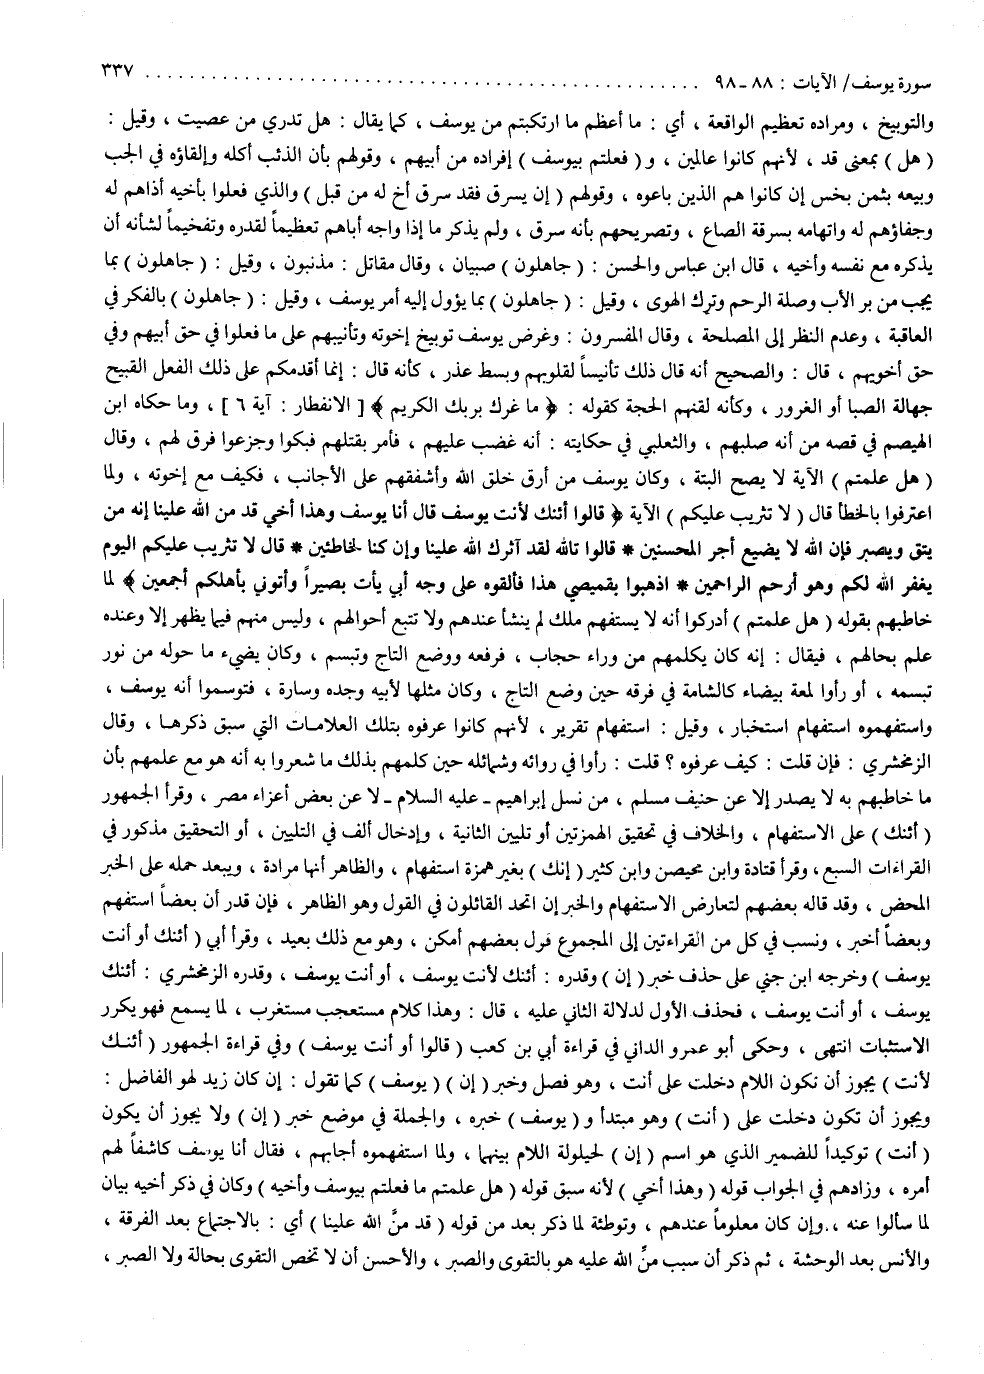 سورة يوسف/ الآيات : ٨٨ ـ ٩٨ ٣٣٧
والتوبيخ ، ومراده تعظيم الواقعة ، أي : ما أعظم ما ارتكبتم من يوسف ، كما يقال : هل تدري من عصيت ، وقيل :
( هل ) بمعنى قد ، لأنهم كانوا عالمين ، و( فعلتم بيوسف ) إفراده من أبيهم ، وقولهم بأن الذئب أكله وإلقاؤه في الجب
وبيعه بثمن بخس إن كانوا هم الذين باعوه ، وقولهم ( إن يسرق فقد سرق أخ له من قبل ) والذي فعلوا بأخيه أذاهم له
وجفاؤهم له واتهامه بسرقة الصاع ، وتصريحهم بأنه سرق ، ولم يذكر ما إذا واجه أباهم تعظيماً لقدره وتفخيماً لشأنه أن
يذكره مع نفسه وأخيه ، قال ابن عباس والحسن : ( جاهلون ) صبيان ، وقال مقاتل : مذنبون ، وقيل : ( جاهلون ) بما
يجب من بر الأب وصلة الرحم وترك الهوى ، وقيل : ( جاهلون ) بما يؤول إليه أمر يوسف ، وقيل : ( جاهلون ) بالفكر في
العاقبة ، وعدم النظر إلى المصلحة ، وقال المفسرون : وغرض يوسف توبيخ إخوته وتأنيبهم على ما فعلوا في حق أبيهم وفي
حق أخويهم ، قال : والصحيح أنه قال ذلك تأنيساً لقلوبهم وبسط عذر ، كأنه قال : إنما أقدمكم على ذلك الفعل القبيح
جهالة الصبا أو الغرور ، وكأنه لقنهم الحجة كقوله : ﴿ ما غرك بربك الكريم ﴾ [ الانفطار : آية ٦ ] ، وما حكاه ابن
الهيصم في قصه من أنه صلبهم ، والثعلبي في حكايته : أنه غضب عليهم ، فأمر بقتلهم فبكوا وجزعوا فرق لهم ، وقال
( هل علمتم ) الآية لا يصح البتة ، وكان يوسف من أرق خلق الله وأشفقهم على الأجانب ، فكيف مع إخوته ، ولما
اعترفوا بالخطأ قال ( لا تثريب عليكم ) الآية ﴿ قالوا أئنك لأنت يوسف قال أنا يوسف وهذا أخي قد من الله علينا إنه من
يتق ويصبر فإن الله لا يضيع أجر المحسنين * قالوا تالله لقد آثرك الله علينا وإن كنا لخاطئين * قال لا تثريب عليكم اليوم
يغفر الله لكم وهو أرحم الراحمين * اذهبوا بقميصي هذا فألقوه على وجه أبي يأت بصيراً وأتوني بأهلكم أجمعين ﴾ لما
خاطبهم بقوله ( هل علمتم ) أدركوا أنه لا يستفهم ملك لم ينشأ عندهم ولا تتبع أحوالهم ، وليس منهم فيما يظهر إلا وعنده
علم بحالهم ، فيقال : إنه كان يكلمهم من وراء حجاب ، فرفعه ووضع التاج وتبسم ، وكان يضيء ما حوله من نور
تبسمه ، أو رأوا لمعة بيضاء كالشامة في فرقه حين وضع التاج ، وكان مثلها لأبيه وجده وسارة ، فتوسموا أنه يوسف ،
واستفهموه استفهام استخبار ، وقيل : استفهام تقرير ، لأنهم كانوا عرفوه بتلك العلامات التي سبق ذكرها ، وقال
الزمخشري : فإن قلت : كيف عرفوه ؟ قلت : رأوا في روائه وشمائله حين كلمهم بذلك ما شعروا به أنه هو مع علمهم بأن
ما خاطبهم به لا يصدر إلا عن حنيف مسلم ، من نسل إبراهيم ـ عليه السلام ـ لا عن بعض أعزاء مصر ، وقرأ الجمهور
( أئنك ) على الاستفهام ، والخلاف في تحقيق الهمزتين أو تليين الثانية ، وإدخال ألف في التليين ، أو التحقيق مذكور في
القراءات السبع ، وقرأ قتادة وابن محيصن وابن كثير ( إنك ) بغير همزة استفهام ، والظاهر أنها مرادة ، ويبعد حمله على الخبر
المحض ، وقد قاله بعضهم لتعارض الاستفهام والخبر إن اتحد القائلون في القول وهو الظاهر ، فإن قدر أن بعضاً استفهم
وبعضاً أخبر ، ونسب في كل من القراءتين إلى المجموع قول بعضهم أمكن ، وهو مع ذلك بعيد ، وقرأ أبي ( أئنك أو أنت
يوسف ) وخرجه ابن جني على حذف خبر ( إن ) وقدره : أئنك لأنت يوسف ، أو أنت يوسف ، وقدره الزمخشري : أئنك
يوسف ، أو أنت يوسف ، فحذف الأول لدلالة الثاني عليه ، قال : وهذا كلام مستعجب مستغرب ، لما يسمع فهو يكرر
الاستثبات انتهى ، وحكى أبو عمرو الداني في قراءة أبي بن كعب ( قالوا أو أنت يوسف ) وفي قراءة الجمهور ( أئنك
لأنت ) يجوز أن تكون اللام دخلت على أنت ، وهو فصل وخبر ( إن ) ( يوسف ) كما تقول : إن كان زيد لهو الفاضل :
ويجوز أن تكون دخلت على ( أنت ) وهو مبتدأ و ( يوسف ) خبره ، والجملة في موضع خبر ( إن ) ولا يجوز أن يكون
( أنت ) توكيداً للضمير الذي هو اسم ( إن ) لحيلولة اللام بينهما ، ولما استفهموه أجابهم ، فقال أنا يوسف كاشفاً لهم
أمره ، وزادهم في الجواب قوله ( وهذا أخي ) لأنه سبق قوله ( هل علمتم ما فعلتم بيوسف وأخيه ) وكان في ذكر أخيه بيان
لما سألوا عنه ، وإن كان معلوماً عندهم ، وتوطئة لما ذكر بعد من قوله ( قد منَّ الله علينا ) أي : بالاجتماع بعد الفرقة ،
والأنس بعد الوحشة ، ثم ذكر أن سبب منِّ الله عليه هو بالتقوى والصبر ، والأحسن أن لا تخص التقوى بحالة ولا الصبر ،